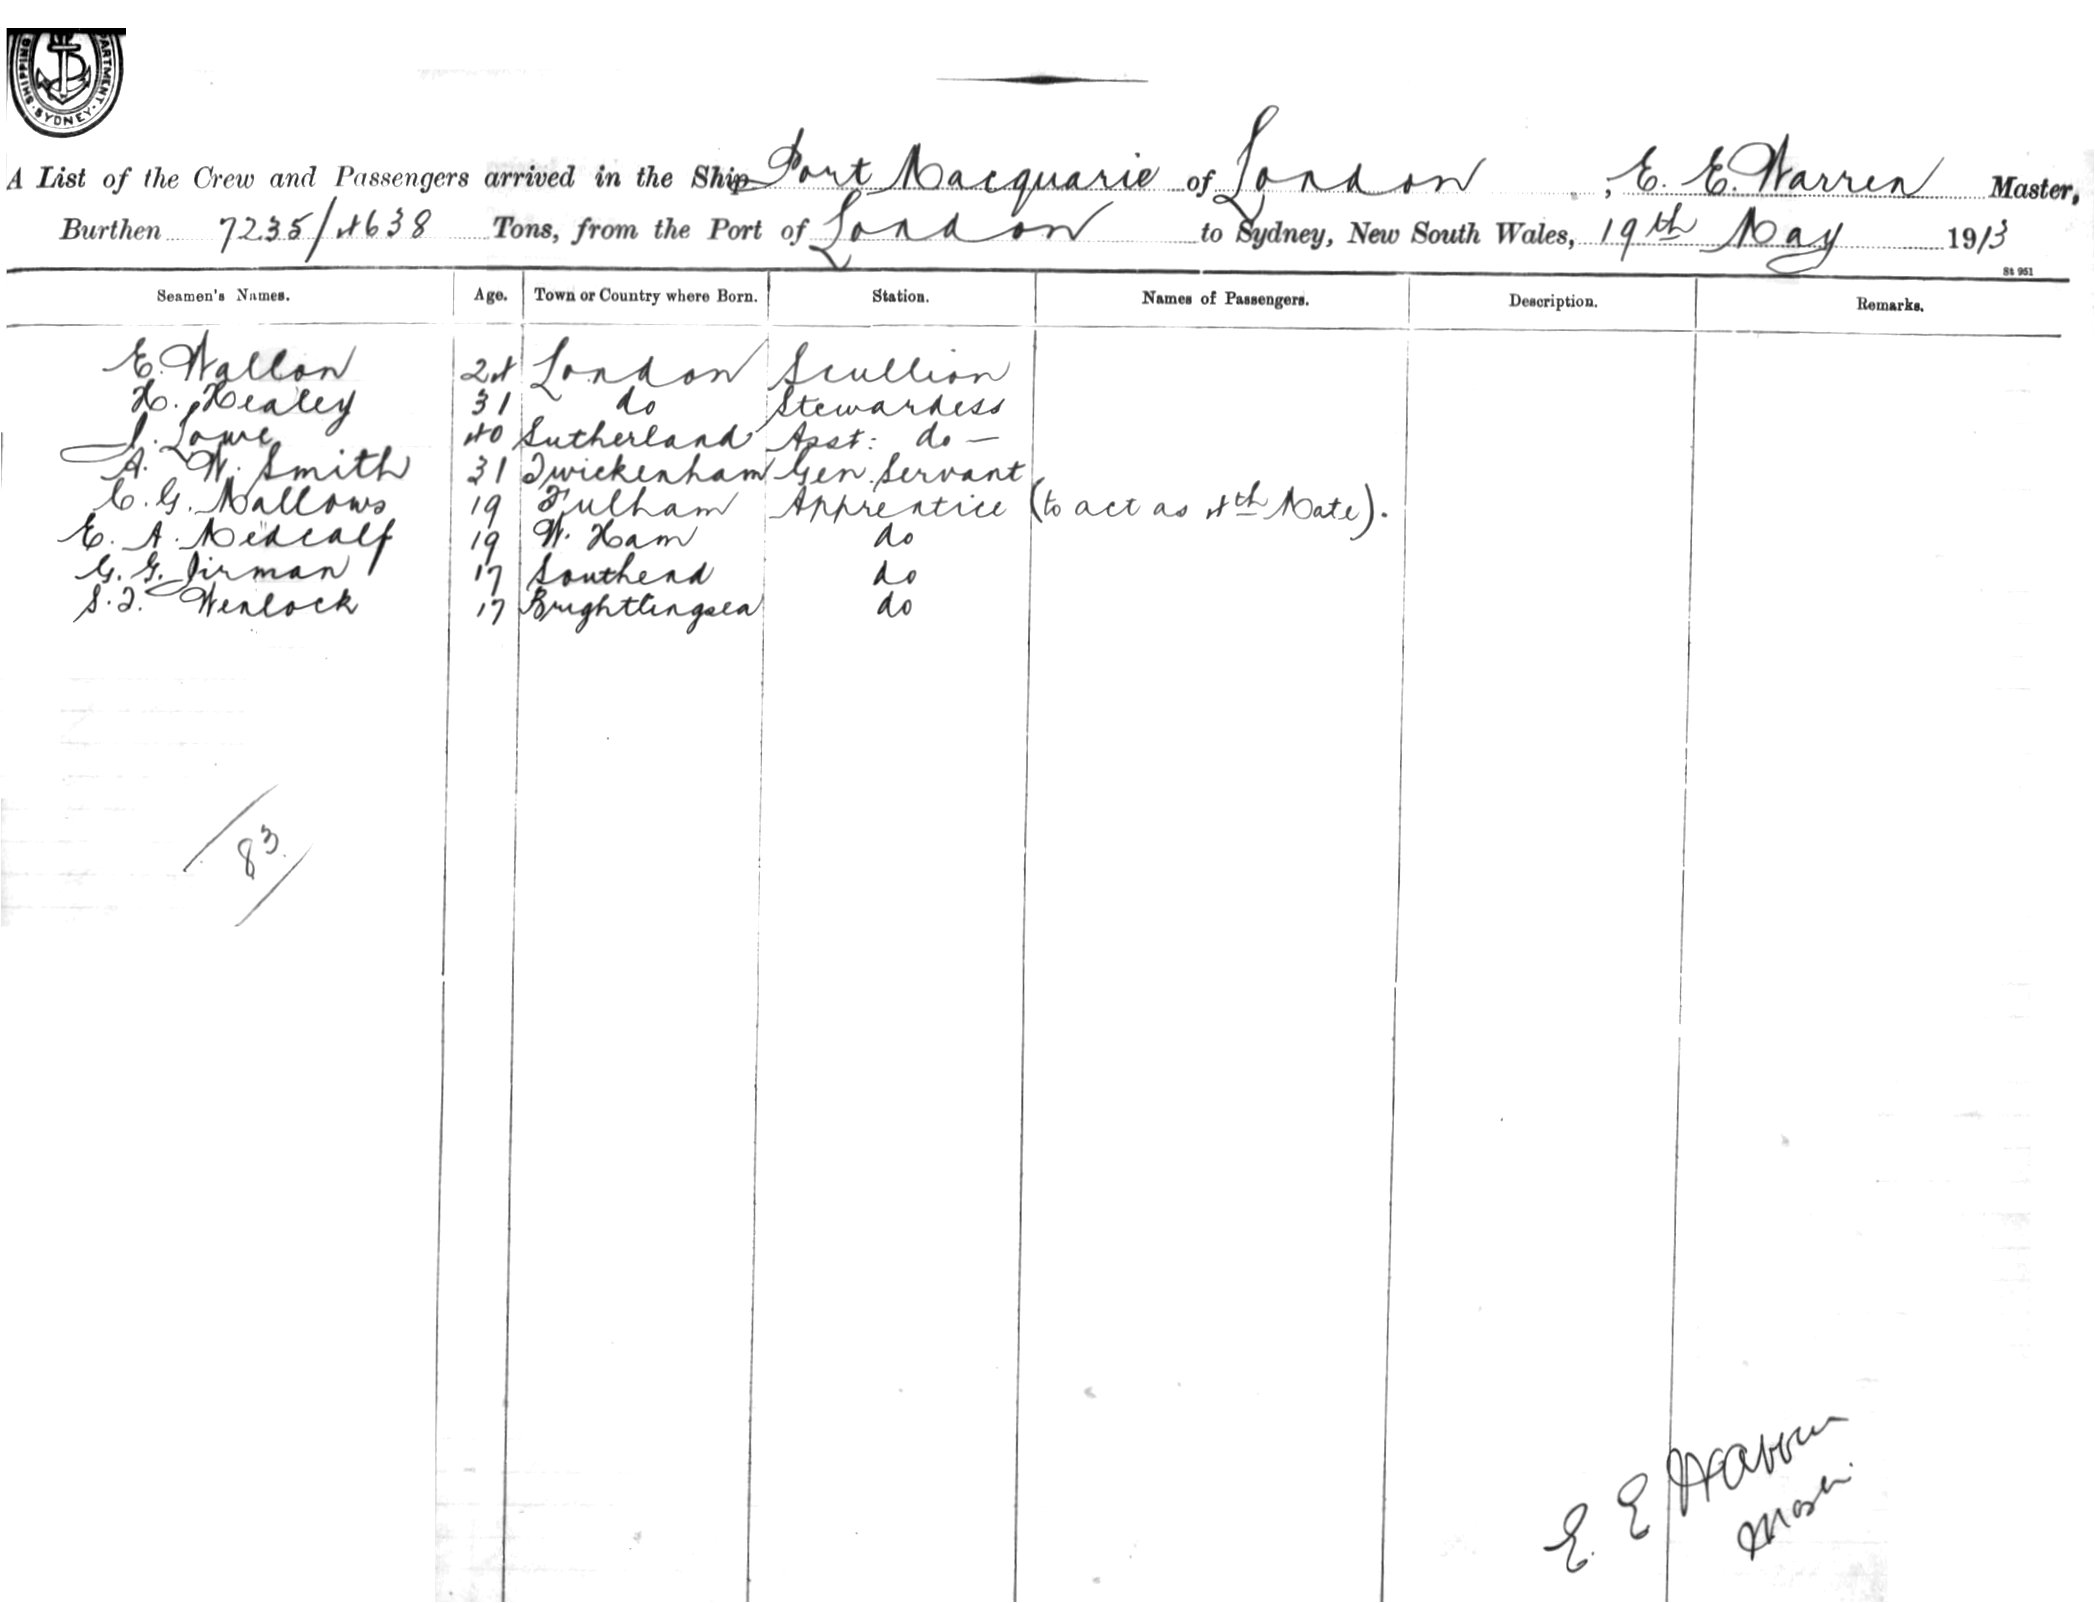 SHIPPING DEPARTMENT. SYDNEY
A List of the Crew and Passengers arrived in the Ship Port Macquarie of London, E. E. Warren Master,
Burthen 7235/4638 Tons, from the Port of London to Sydney, New South Wales, 19th May 1913
St 951
Seamen's Names. Age. Town or Country where Born. Station. Names of Passengers. Description. Remarks.
E. Wallon 24 London Scullion
H. Healey 31 do Stewardess
J. Lowe 40 Sutherland Asst: do —
A. W. Smith 31 Twickenham Gen. Servant
C. G. Mallows 19 Fulham Apprentice (to act as 4th Mate).
E. A. Medcalf 19 W. Ham do
G. G. Jirman 17 Southend do
S. T. Wenlock 17 Brightlingsea do
83
E. E. Warren
Master